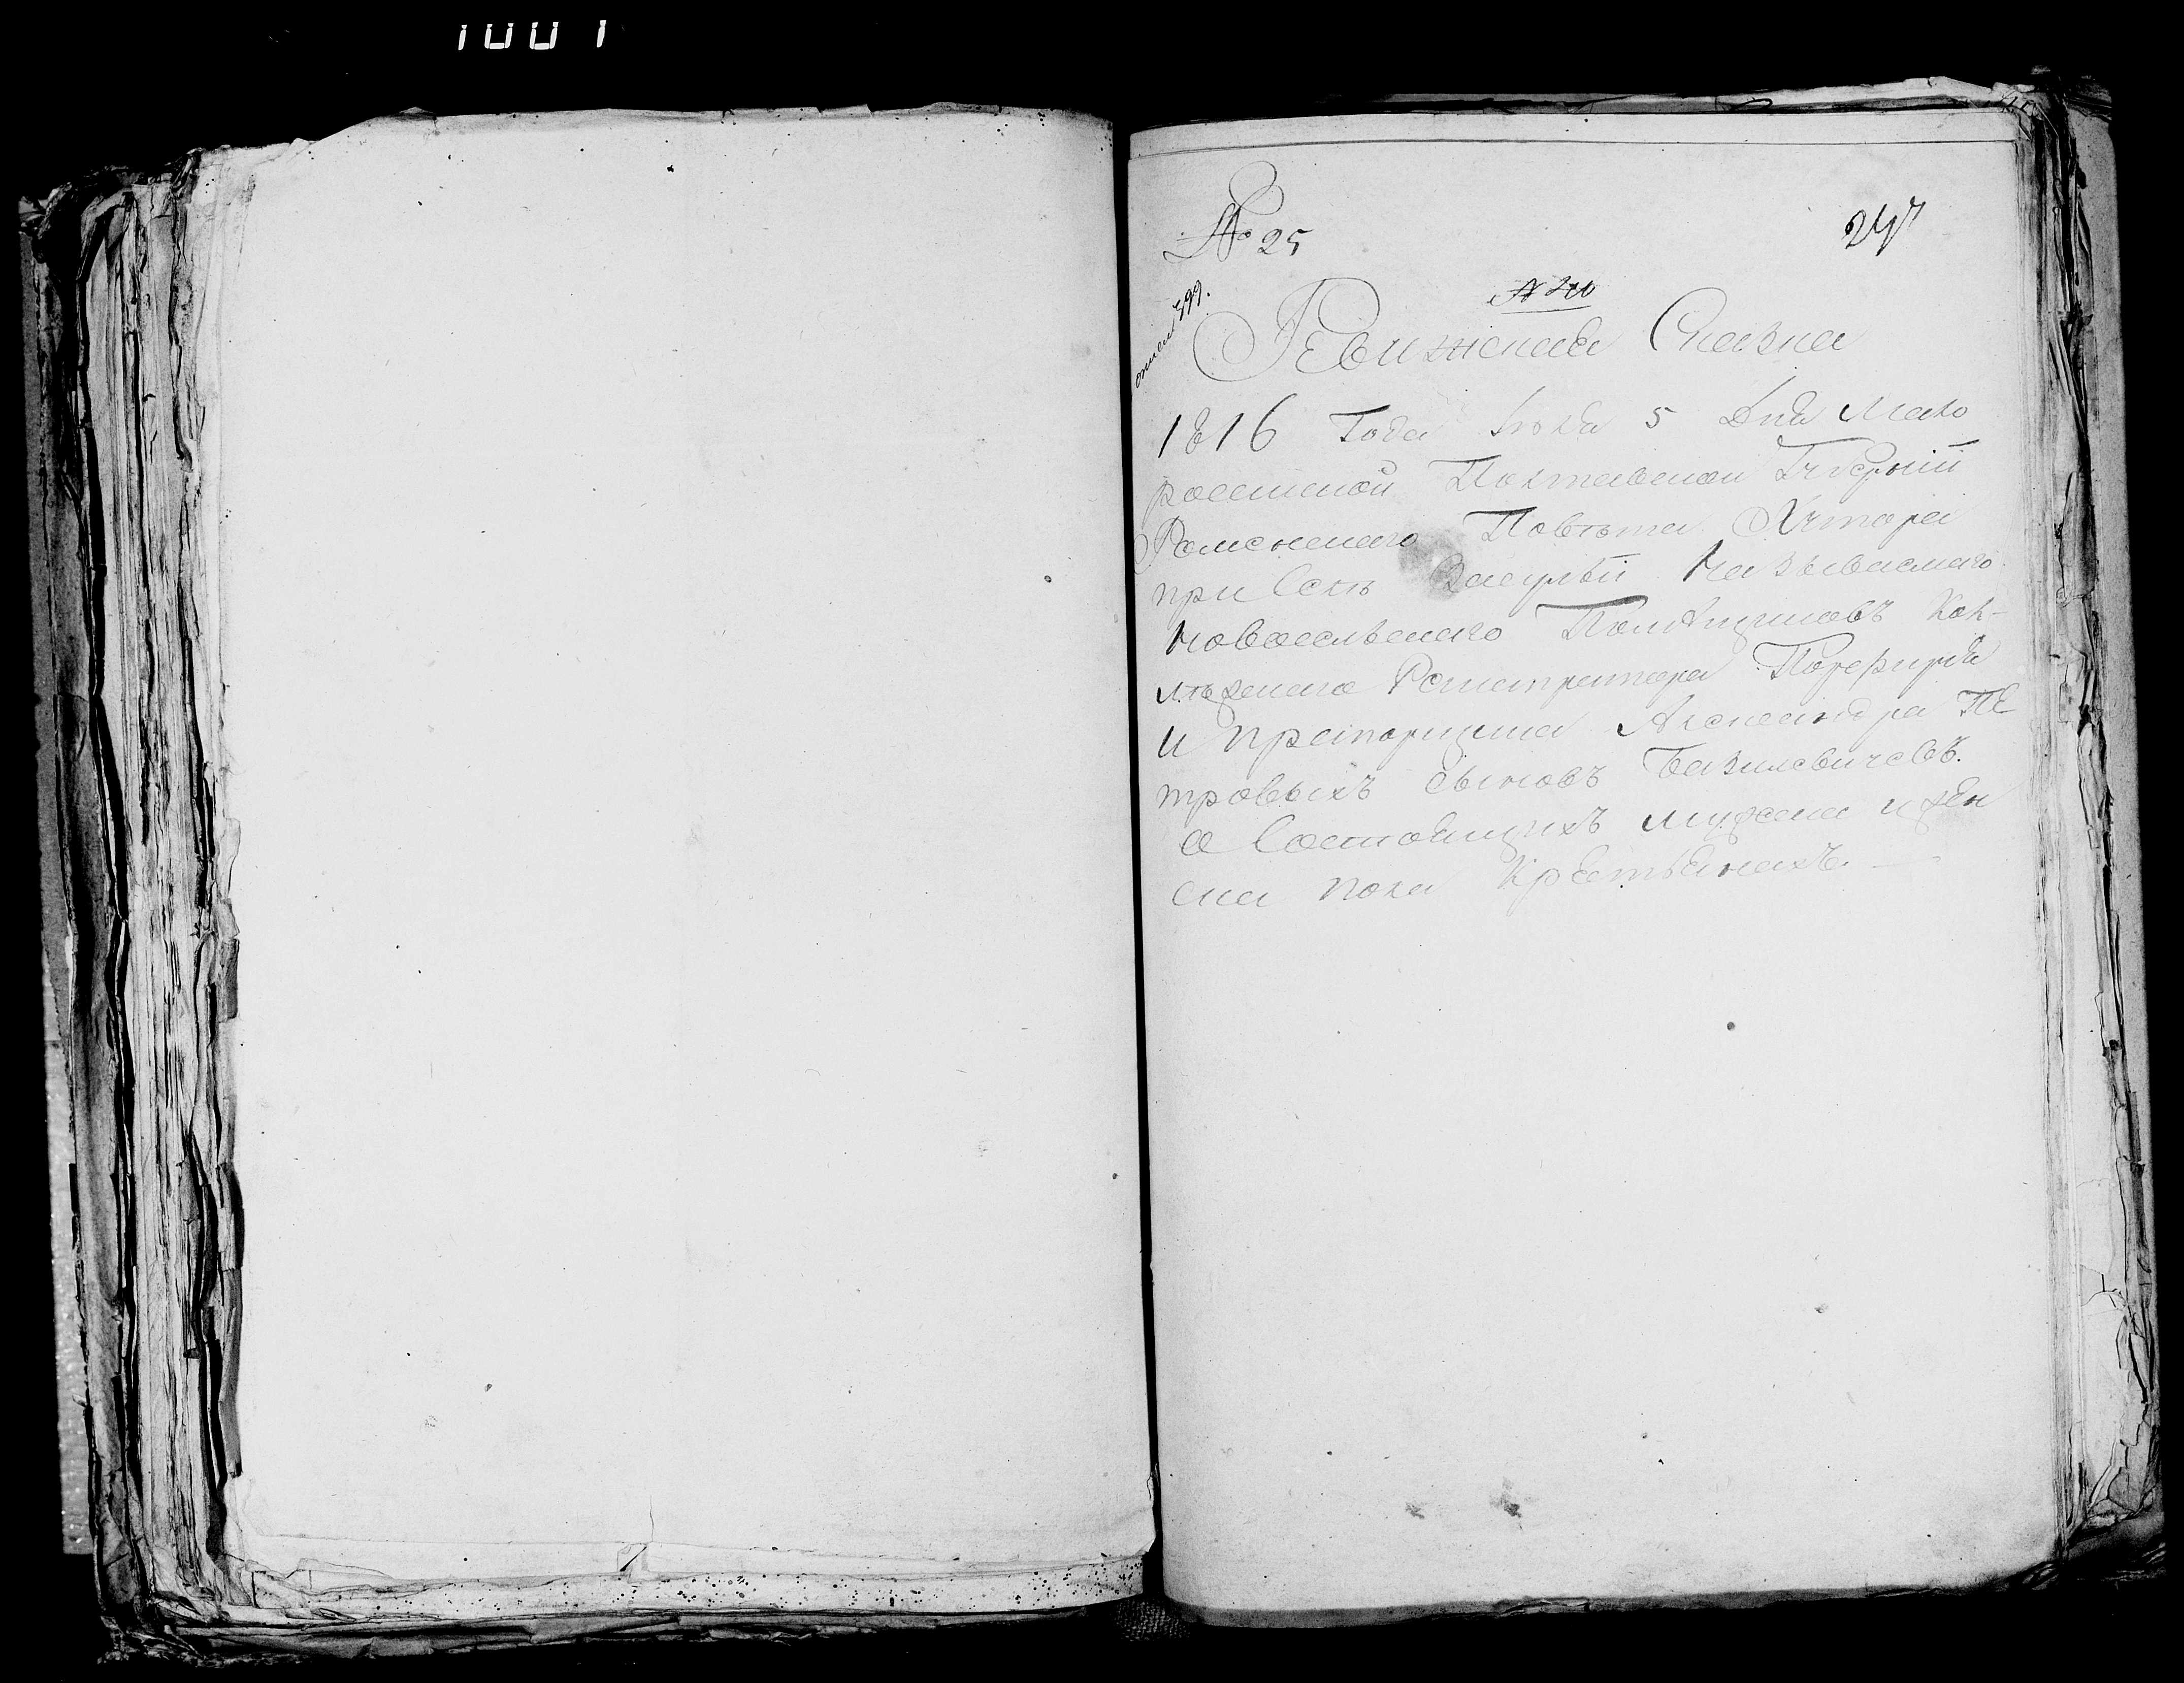 1001
№ 25
247
Ревижская Сказка
1816 Года Июля 5 Дня Мало
российской Полтавской Губернїи
Роменского Повѣта Хутора
при Селѣ Засульи называемаго
Новосельскаго Помѣщиковъ Кол-
лѣжскаго Регистратора Порфирїя
и прапорщика Александра Пе
тровыхъ сыновъ Базилевичевъ
о Состоящихъ мужска и жен
ска пола Крестьянахъ.